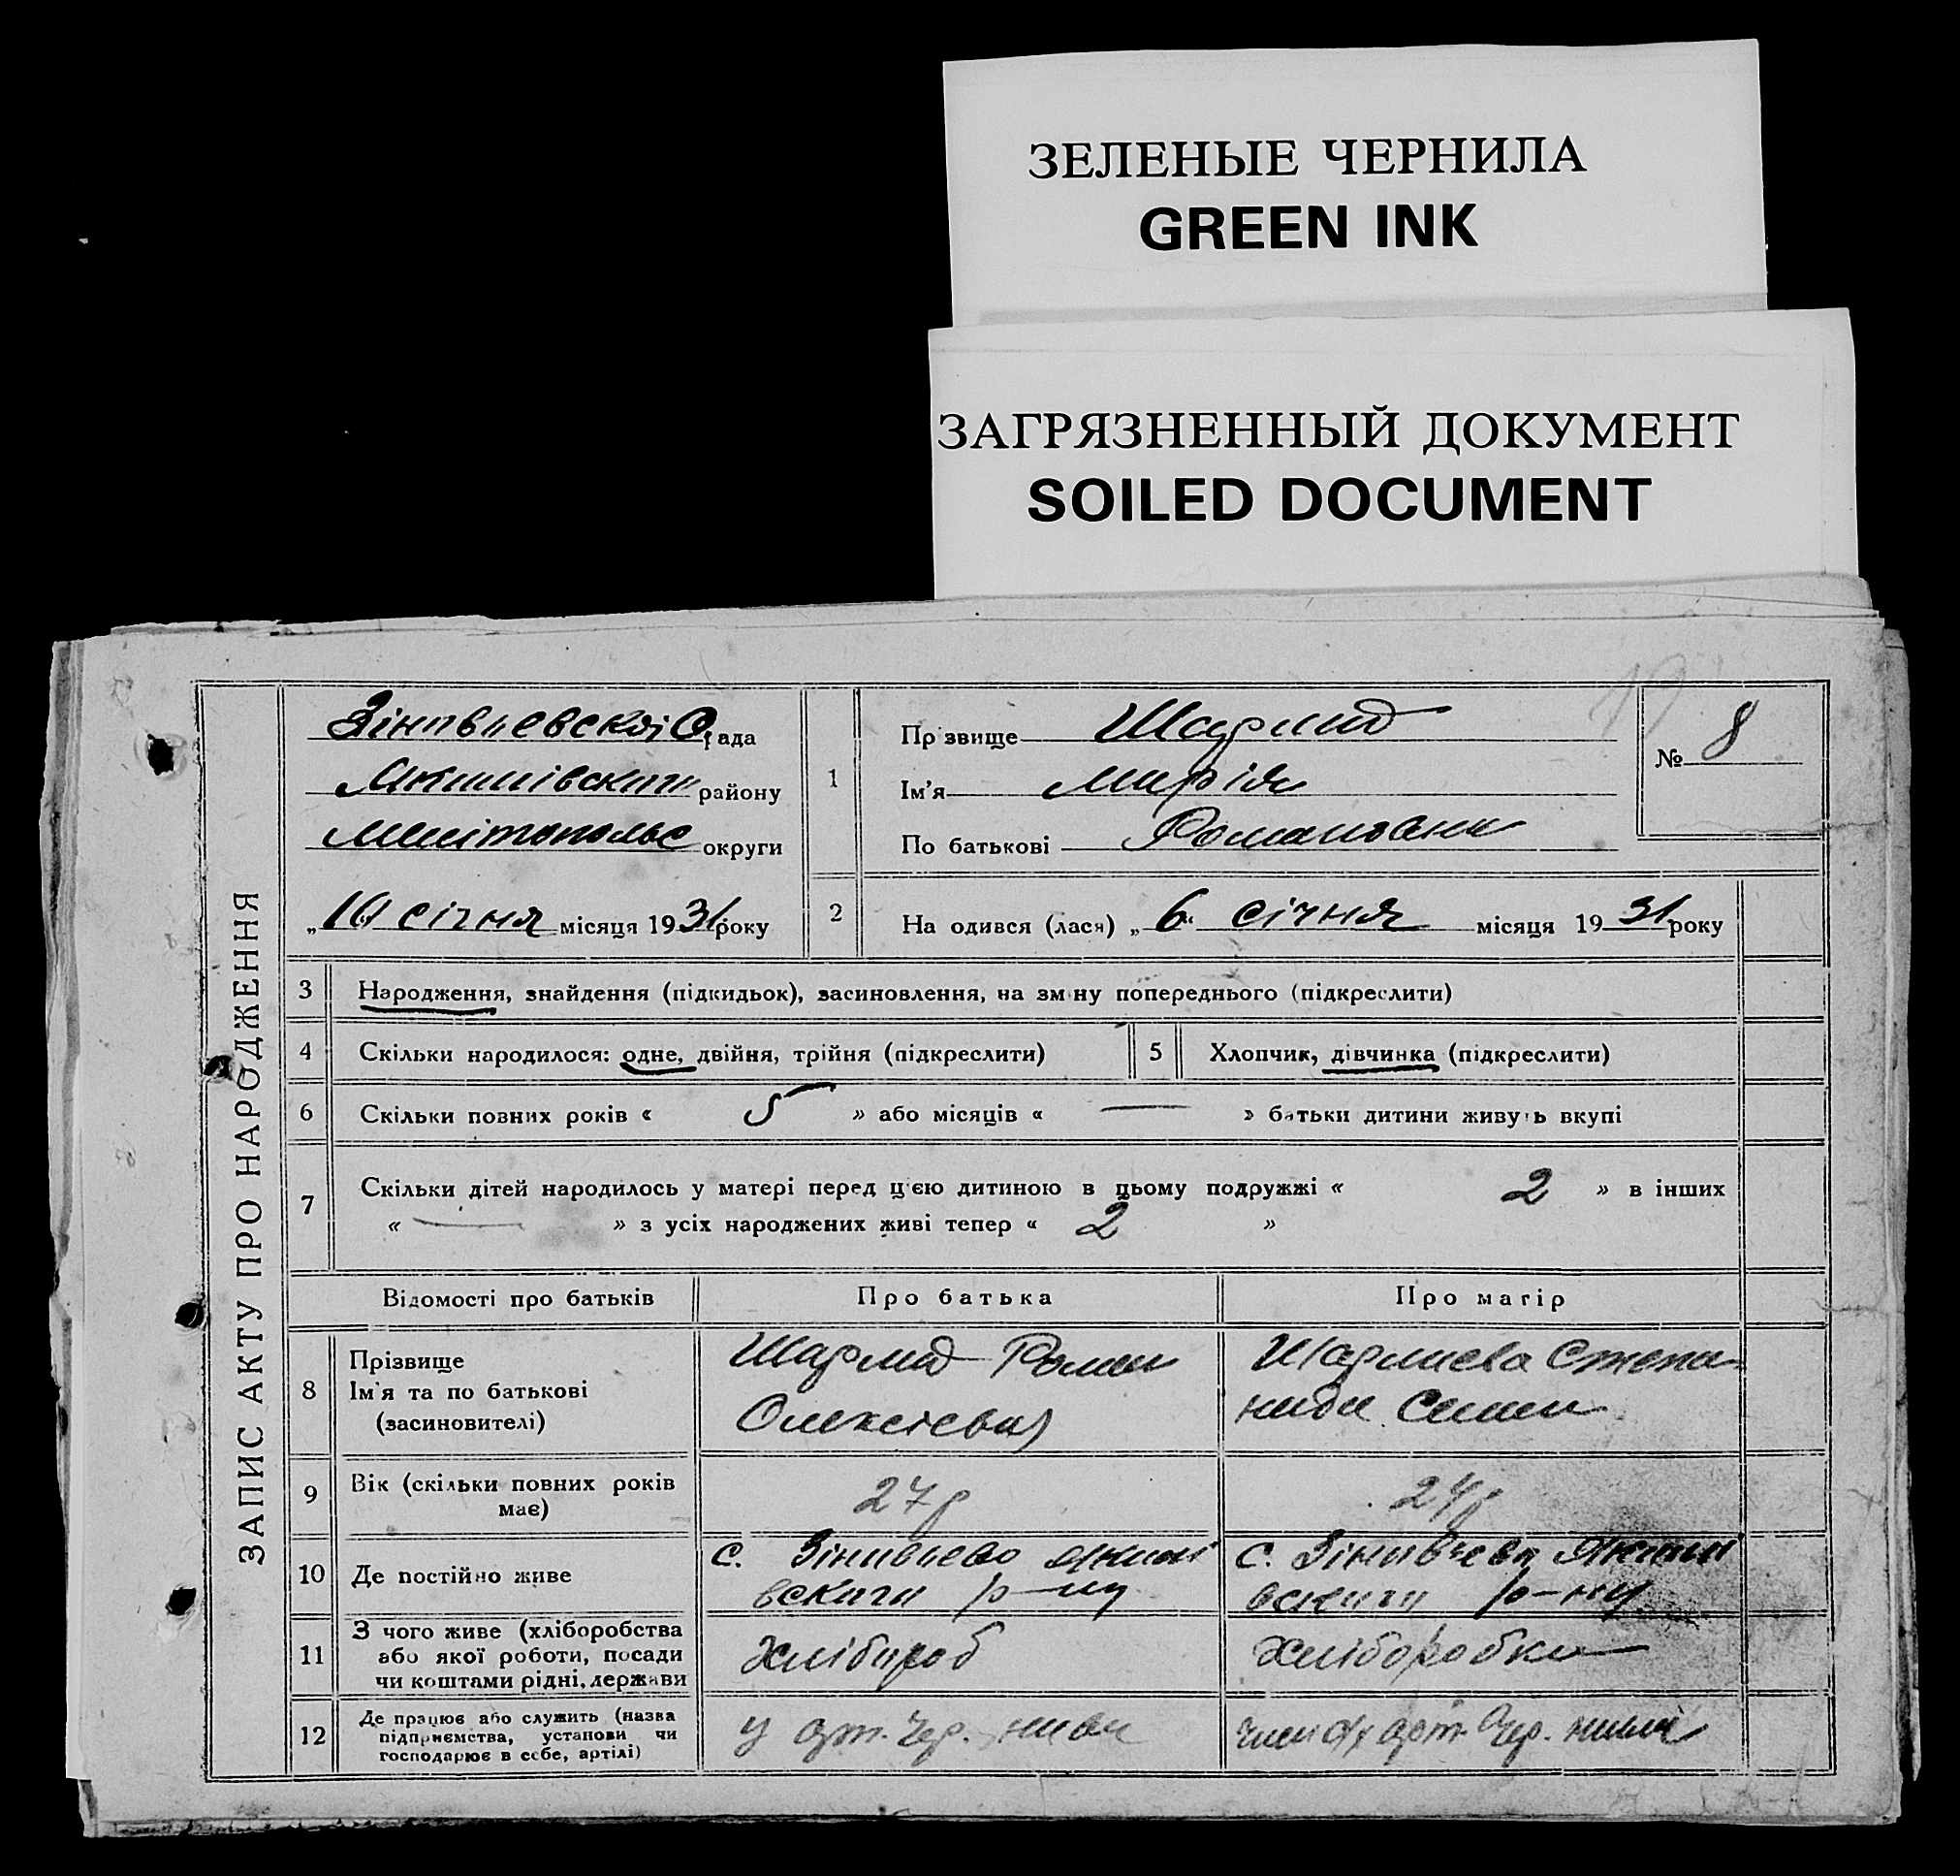 ЗЕЛЕНЫЕ ЧЕРНИЛА
GREEN INK
ЗАГРЯЗНЕННЫЙ ДОКУМЕНТ
SOILED DOCUMENT
ЗАПИС АКТУ ПРО НАРОДЖЕННЯ
рада
району
округи
„10 січня місяця 1931 року
1
Прізвище
Ім'я Марія
По батькові Романовна
№ 8
2
На одився (лася) „6“ січня місяця 1931 року
3 Народження, знайдення (підкидьок), засиновлення, на зміну попереднього (підкреслити)
4 Скільки народилося: одне, двійня, трійня (підкреслити)
5 Хлопчик, дівчинка (підкреслити)
6 Скільки повних років « 5 » або місяців « — » батьки дитини живуть вкупі
7 Скільки дітей народилось у матері перед цією дитиною в цьому подружжі « 2 » в інших
« — » з усіх народжених живі тепер « 2 »
Відомості про батьків
Про батька
Про матір
8 Прізвище
Ім'я та по батькові
(засиновителі)
Роман
Олексієвич
Степа-
нида
9 Вік (скільки повних років
має)
27 р
24 р
10 Де постійно живе
с.
вского р-ну
с.
вского р-ну
11 З чого живе (хліборобства
або якої роботи, посади
чи коштами рідні, держави
Хлібороб
Хліборобка
12 Де працює або служить (назва
підприємства, установи чи
господарює в себе, артілі)
у арт. Чер. нива
арт. Чер. нива